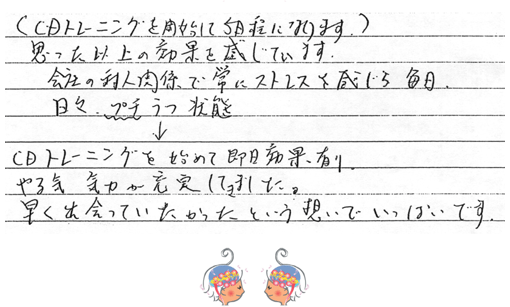 (CDトレーニングを開始して5日程になります。)
思った以上の効果を感じています。
会社の対人関係で常にストレスを感じる毎日.
日々、プチうつ状態
↓
CDトレーニングを始めて即日効果有り.
やる気 気力が充実してきました。
早く出会っていたかったという想いでいっぱいです.